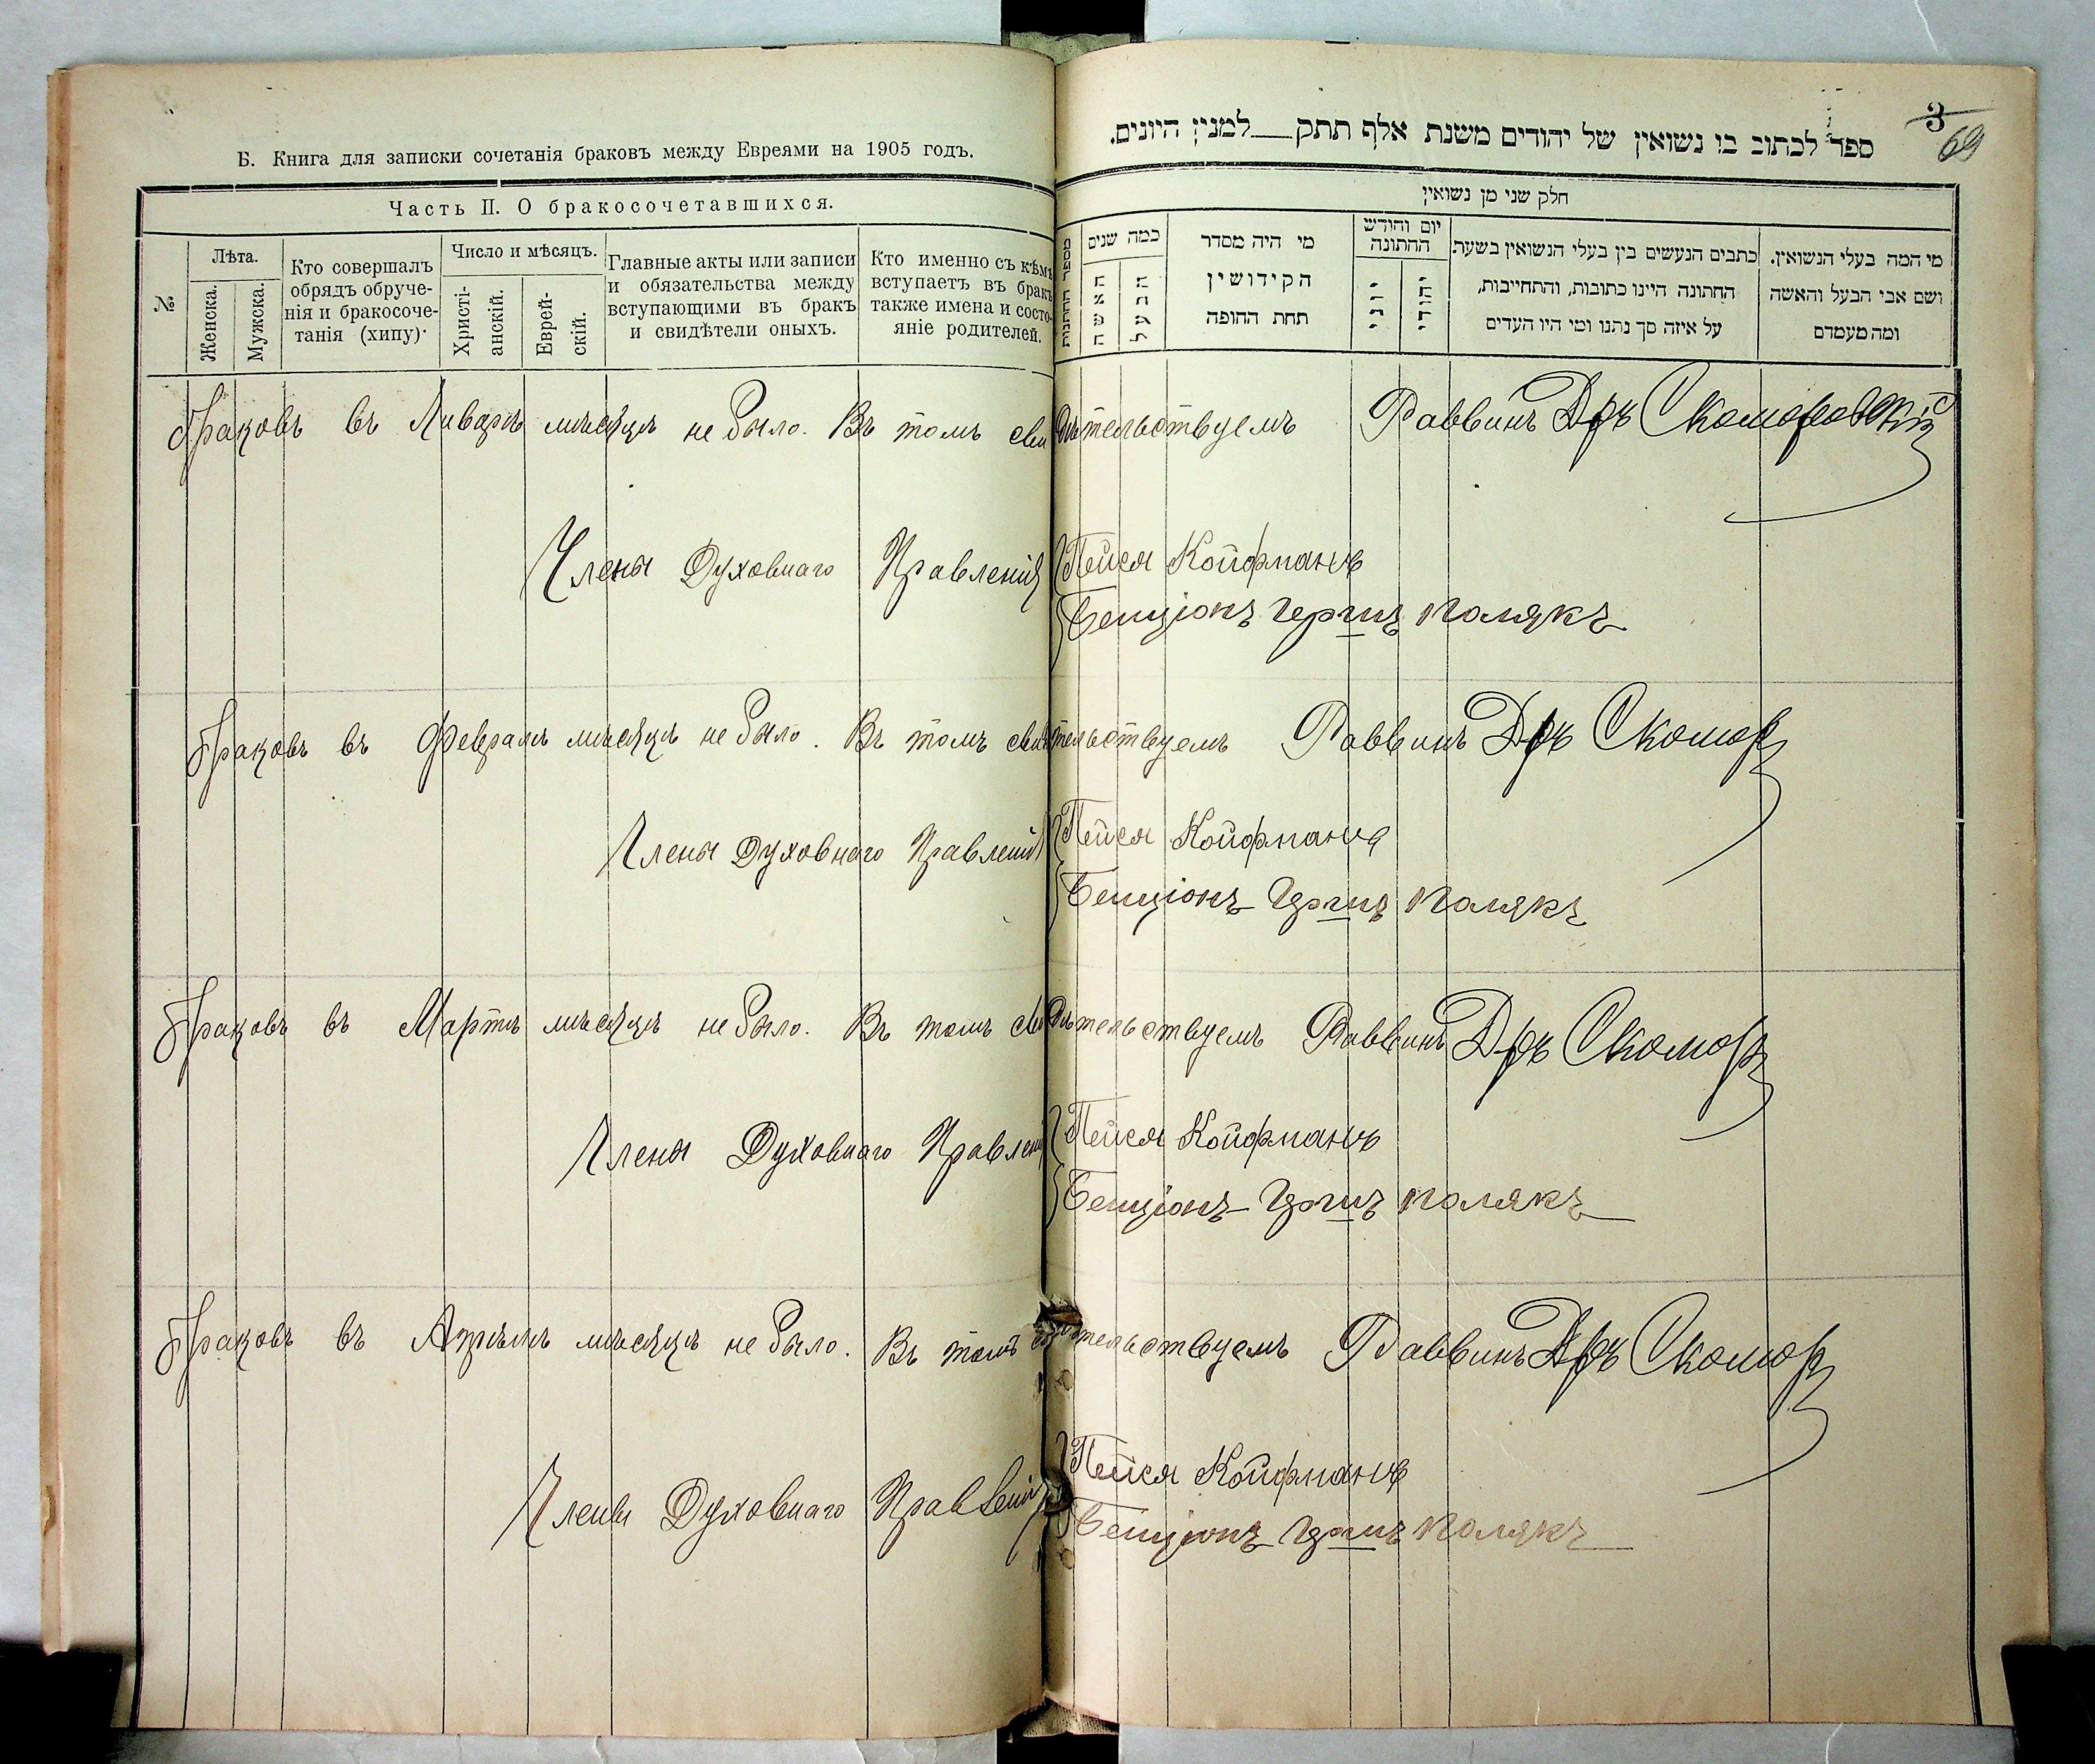 Б. Книга для записки сочетанія браковъ между Евреями на 1905 годъ.
Часть II. О бракосочетавшихся.
№
Лѣта.
Женска.
Мужска.
Кто совершалъ
обрядъ обруче-
нія и бракосоче-
танія (хипу)
Число и мѣсяцъ.
Христі-
анскій.
Еврей-
скій.
Главные акты или записи
и обязательства между
вступающими въ бракъ
и свидѣтели оныхъ.
Кто именно съ кѣмъ
вступаетъ въ бракъ
также имена и состо-
яніе родителей.
3
69
ספר לכתוב בו נשואין של יהודים משנת אלף תתק למנין היונים.
חלק שני מן נשואין
מספר החתנות
כמה שנים
האשה
הבעל
מי היה מסדר
הקידושין
תחת החופה
יום וחודש
החתונה
יוני
יהודי
כתבים הנעשים בין בעלי הנשואין בשעת
החתונה היינו כתובות, והתחייבות,
על איזה סך נתנו ומי היו העדים
מי המה בעלי הנשואין.
ושם אבי הבעל והאשה
ומה מעמדם
Браковъ въ Январѣ мѣсяцѣ не было. Въ томъ свидѣтельствуемъ Раввинъ Дръ Скоморовскій
Члены Духовнаго Правленія Пейся Койфманъ
Бенціонъ Гершъ Полякъ
Браковъ въ Февралѣ мѣсяцѣ не было. Въ томъ свидѣтельствуемъ Раввинъ Дръ Скомор
Члены Духовнаго Правленія Пейся Койфманъ
Бенціонъ Гершъ Полякъ
Браковъ въ Мартѣ мѣсяцѣ не было. Въ томъ свидѣтельствуемъ Раввинъ Дръ Скомор
Члены Духовнаго Правленія Пейся Койфманъ
Бенціонъ Гершъ Полякъ
Браковъ въ Апрѣлѣ мѣсяцѣ не было. Въ томъ свидѣтельствуемъ Раввинъ Дръ Скомор
Члены Духовнаго Правленія Пейся Койфманъ
Бенціонъ Гершъ Полякъ